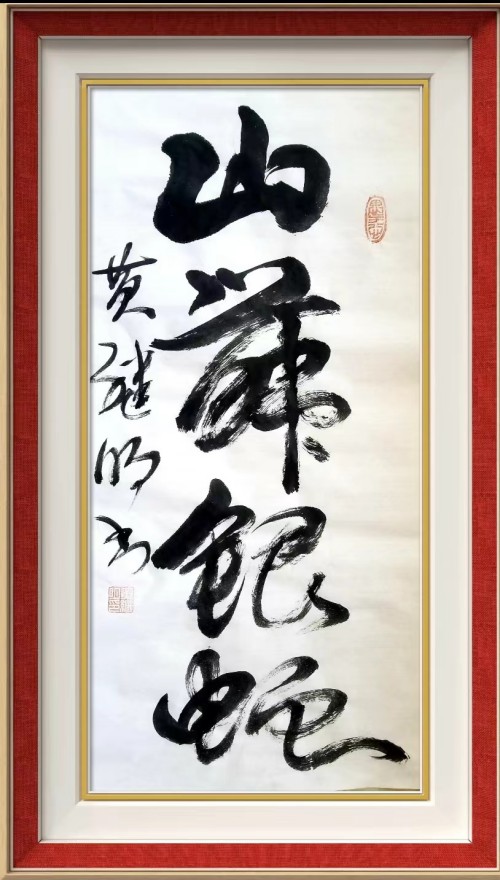 山舞银蛇
黄继明书